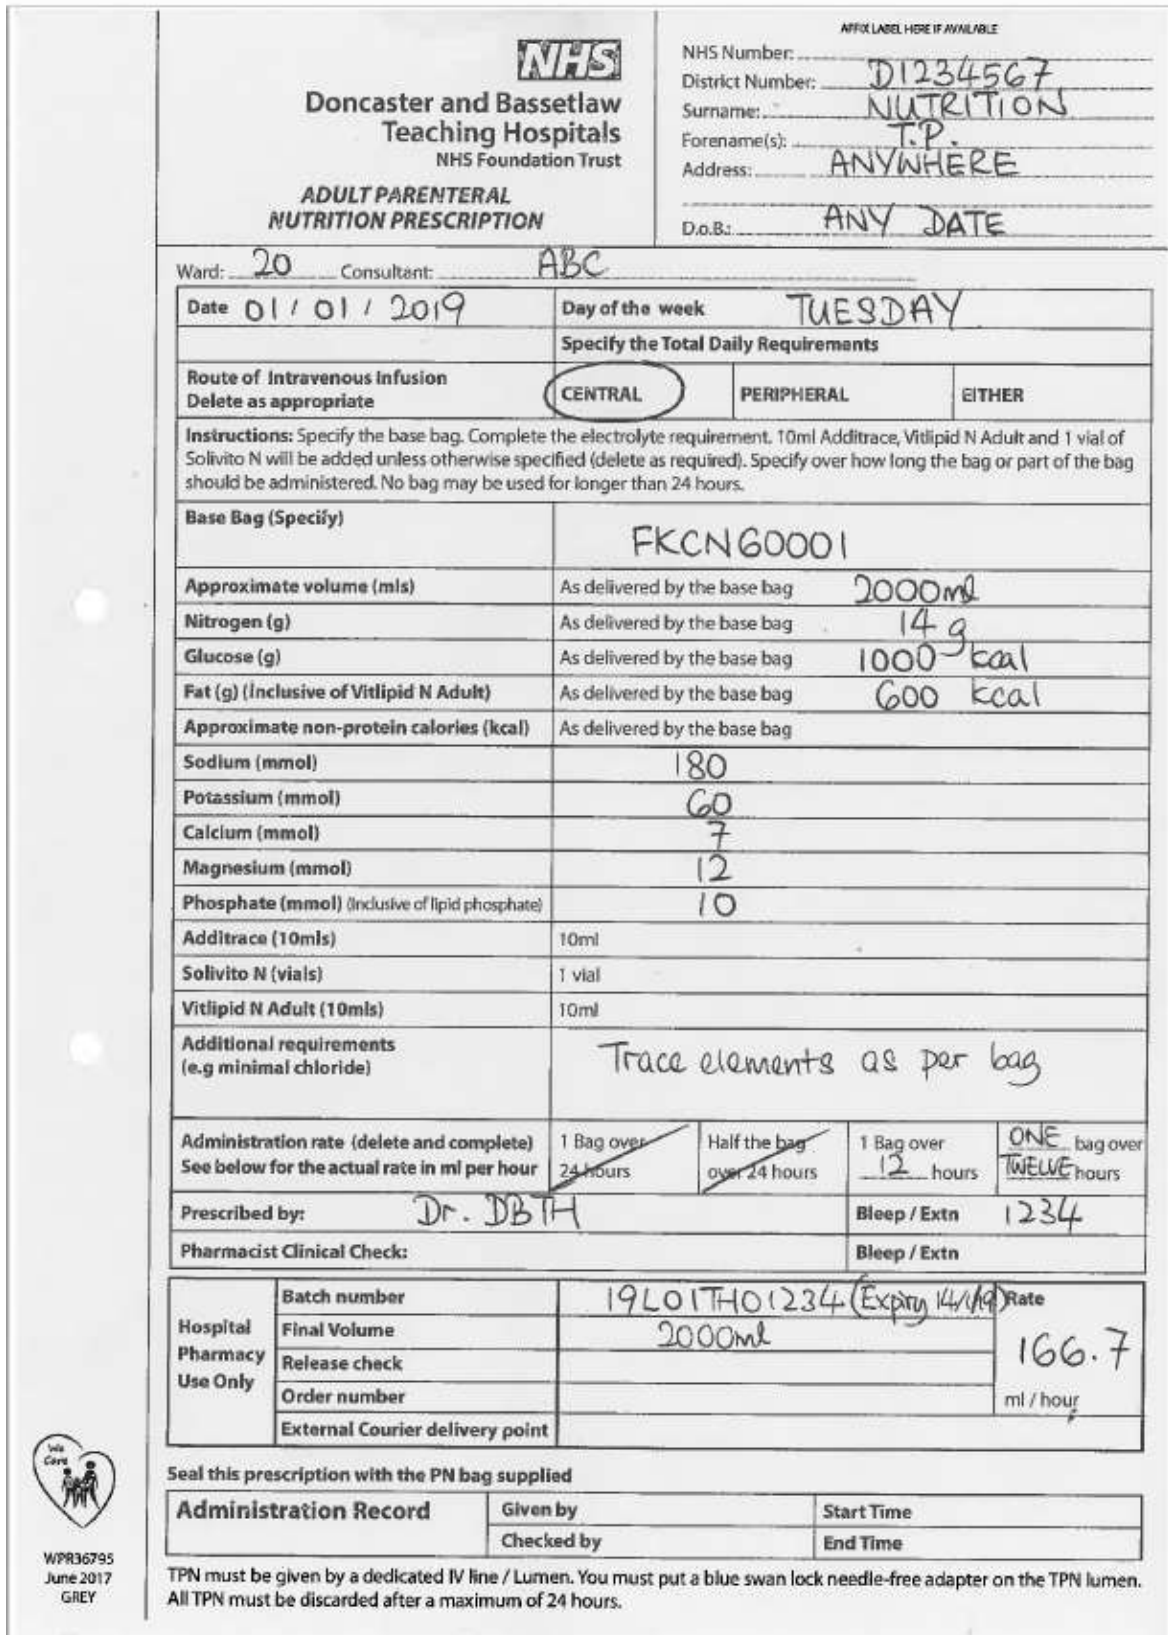 AFFIX LABEL HERE IF AVAILABLE
NHS
Doncaster and Bassetlaw
Teaching Hospitals
NHS Foundation Trust
ADULT PARENTERAL
NUTRITION PRESCRIPTION
NHS Number:
District Number: D1234567
Surname: NUTRITION
Forename(s): T.P.
Address: ANYWHERE
D.o.B.: ANY DATE
Ward: 20 Consultant: ABC
Date 01 / 01 / 2019 Day of the week TUESDAY
Specify the Total Daily Requirements
Route of Intravenous Infusion
Delete as appropriate
CENTRAL PERIPHERAL EITHER
Instructions: Specify the base bag. Complete the electrolyte requirement. 10ml Additrace, Vitlipid N Adult and 1 vial of
Solivito N will be added unless otherwise specified (delete as required). Specify over how long the bag or part of the bag
should be administered. No bag may be used for longer than 24 hours.
Base Bag (Specify) FKCN60001
Approximate volume (mls) As delivered by the base bag 2000ml
Nitrogen (g) As delivered by the base bag 14 g
Glucose (g) As delivered by the base bag 1000 kcal
Fat (g) (Inclusive of Vitlipid N Adult) As delivered by the base bag 600 kcal
Approximate non-protein calories (kcal) As delivered by the base bag
Sodium (mmol) 180
Potassium (mmol) 60
Calcium (mmol) 7
Magnesium (mmol) 12
Phosphate (mmol) (Inclusive of lipid phosphate) 10
Additrace (10mls) 10ml
Solivito N (vials) 1 vial
Vitlipid N Adult (10mls) 10ml
Additional requirements
(e.g minimal chloride)
Trace elements as per bag
Administration rate (delete and complete)
See below for the actual rate in ml per hour
1 Bag over
24 hours
Half the bag
over 24 hours
1 Bag over
12 hours
ONE bag over
TWELVE hours
Prescribed by: Dr. DBTH Bleep / Extn 1234
Pharmacist Clinical Check: Bleep / Extn
Hospital
Pharmacy
Use Only
Batch number 19L01TH01234 (Expiry 14/1/19)
Final Volume 2000ml
Release check
Order number
External Courier delivery point
Rate
166.7
ml / hour
Seal this prescription with the PN bag supplied
Administration Record Given by Start Time
Checked by End Time
We
Care
WPR36795
June 2017
GREY
TPN must be given by a dedicated IV line / Lumen. You must put a blue swan lock needle-free adapter on the TPN lumen.
All TPN must be discarded after a maximum of 24 hours.